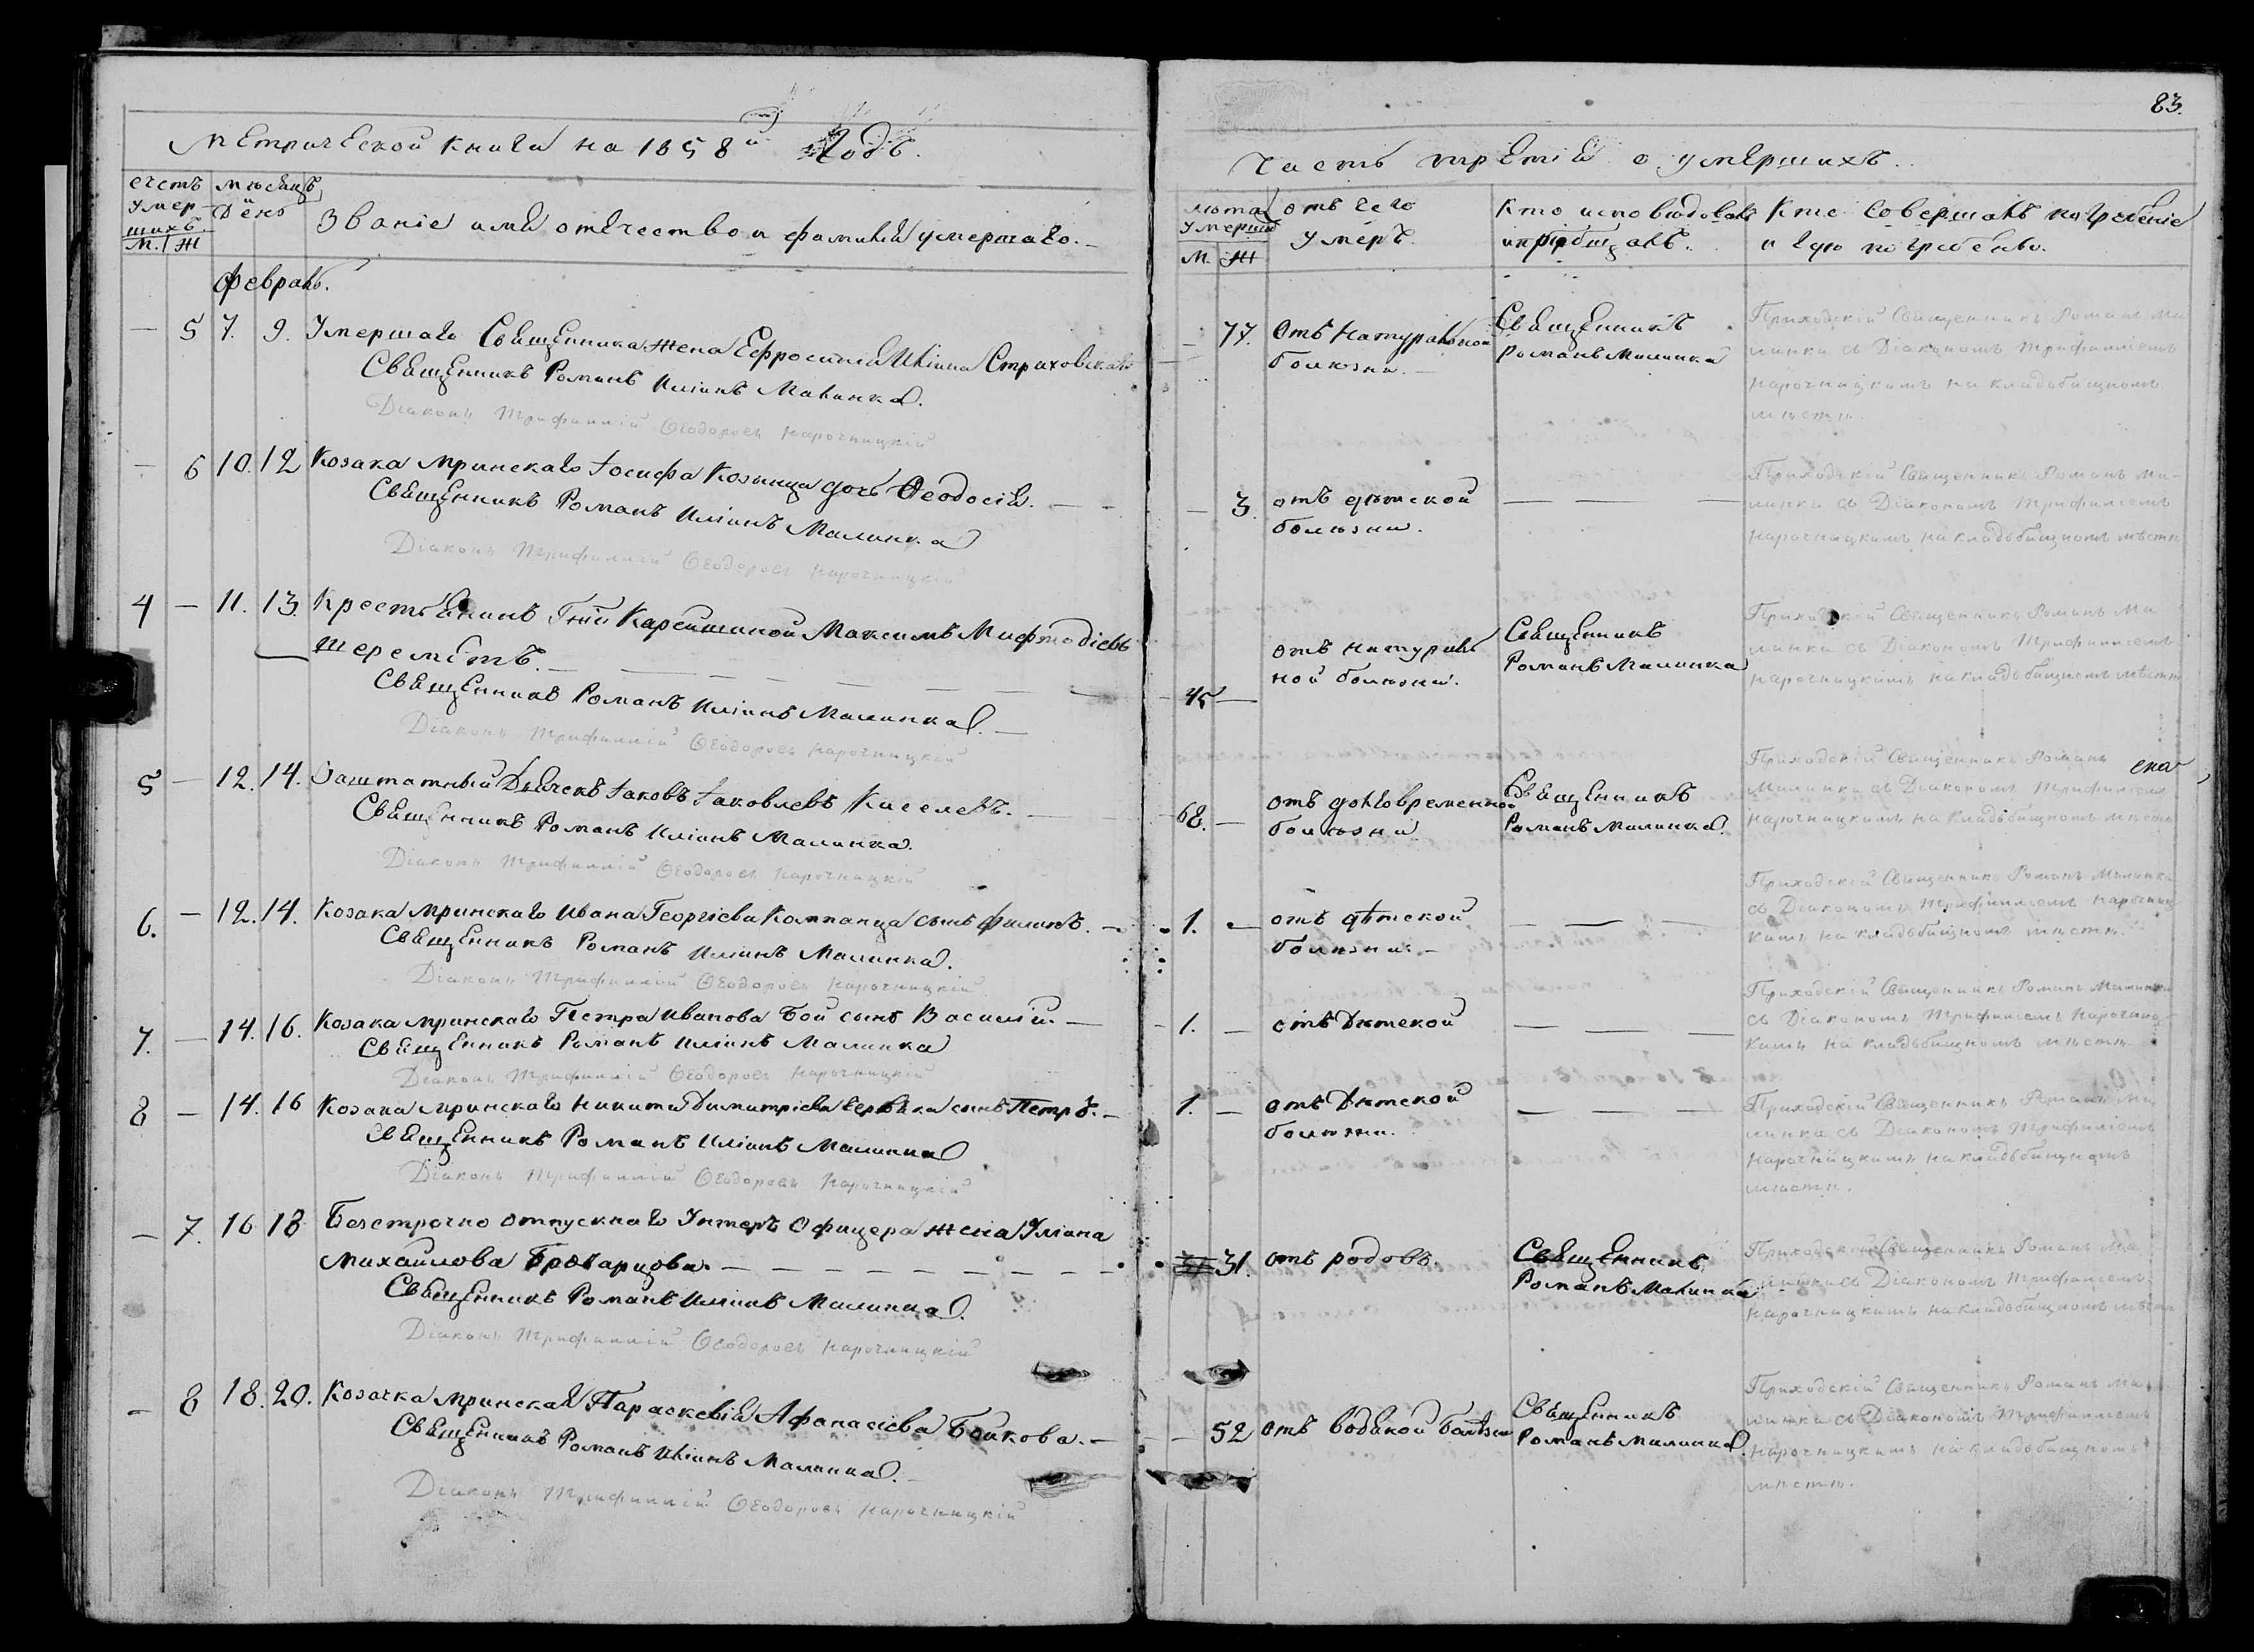 Метрической книги на 1858й Годъ.
счетъ умер-шихъ.
М. Ж
мѣсяцъ и День
Званіе имя отечество и фамилія умершаго.
Февраль.
— 5 7. 9. Умершаго Священника жена Ефросинія Иліина Страховская
Священникъ Романъ Иліинъ Малинка.
Діаконъ Трифиллій Ѳеодоровъ Нарочницкій
— 6 10. 12 Козака мринскаго Іосифа Козинца дочь Ѳеодосія.
Священникъ Романъ Иліинъ Малинка
Діаконъ Трифиллій Ѳеодоровъ Нарочницкій
4 — 11. 13. Крестьянинъ Гжи Максимъ Мифтодіевъ
Шереметъ.
Священникъ Романъ Иліинъ Малинка.
Діаконъ Трифиллій Ѳеодоровъ Нарочницкій
5 — 12. 14. Заштатный Дьячекъ Іаковъ Іаковлевъ Киселевъ.
Священникъ Романъ Иліинъ Малинка.
Діаконъ Трифиллій Ѳеодоровъ Нарочницкій
6. — 12. 14. Козака мринскаго Ивана Георгіева Компанца сынъ Филипъ.
Священникъ Романъ Иліинъ Малинка.
Діаконъ Трифиллій Ѳеодоровъ Нарочницкій
7. — 14. 16. Козака мринскаго Петра Иванова Бой сынъ Василій.
Священникъ Романъ Иліинъ Малинка
Діаконъ Трифиллій Ѳеодоровъ Нарочницкій
8 — 14. 16 Козака мринскаго Никиты Димитріева сынъ Петръ.
Священникъ Романъ Иліинъ Малинка
Діаконъ Трифиллій Ѳеодоровъ Нарочницкій
— 7. 16 18 Безсрочно отпускнаго Унтеръ Офицера жена Уліана
Михайлова
Священникъ Романъ Иліинъ Малинка.
Діаконъ Трифиллій Ѳеодоровъ Нарочницкій
— 8 18. 20. Козачка мринская Параскевія Афанасіева Бойкова.
Священникъ Романъ Иліинъ Малинка.
Діаконъ Трифиллій Ѳеодоровъ Нарочницкій
83.
Часть третія о умершихъ.
лѣта умерш
М. Ж
отъ чего умеръ.
Кто исповѣдовалъ и пріобщалъ.
Кто совершалъ погребеніе
и гдѣ погребены.
— 77. Отъ натуральной болѣзни. —
Священникъ Романъ Малинка
Приходскій Священникъ Романъ Ма
линка съ Діакономъ Трифилліемъ
Нарочницкимъ на кладьбищномъ
мѣстѣ.
— 3. отъ дѣтской болѣзни.
— —
Приходскій Священникъ Романъ Ма-
линка съ Діакономъ Трифиліемъ
Нарочницкимъ на кладьбищномъ мѣстѣ
45 — отъ натураль ной болѣзни.
Священникъ Романъ Малинка
Приходскій Священникъ Романъ Ма
линка съ Діакономъ Трифилліемъ
Нарочницкимъ на кладьбищномъ мѣстѣ
68. — отъ долговременной болѣзни
Священникъ Романъ Малинка.
Приходскій Священникъ Романъ
Малинка съ Діакономъ Трифиліемъ
Нарочницкимъ на кладьбищномъ мѣстѣ
1. — отъ дѣтской болѣзни. —
— — —
Приходскій Священникъ Романъ Малинка
съ Діакономъ Трифилліемъ Нарочниц
кимъ на кладьбищномъ мѣстѣ.
1. — отъ Дѣтской
— — —
Приходскій Священникъ Романъ Малинка
съ Діакономъ Трифиліемъ Нарочниц
кимъ на кладьбищномъ мѣстѣ
1. — отъ Дѣтской болѣзни.
— — —
Приходскій Священникъ Романъ Ма
линка съ Діакономъ Трифиліемъ
Нарочницкимъ на кладьбищномъ
мѣстѣ.
31. отъ родовъ.
Священникъ Романъ Малинка
Приходскій Священникъ Романъ Ма
линка съ Діакономъ Трифиліемъ
Нарочницкимъ на кладьбищномъ мѣстѣ
— 52 отъ водяной болѣзни
Священникъ Романъ Малинка.
Приходскій Священникъ Романъ Ма
линка съ Діакономъ Трифилліемъ
Нарочницкимъ на кладьбищномъ
мѣстѣ.